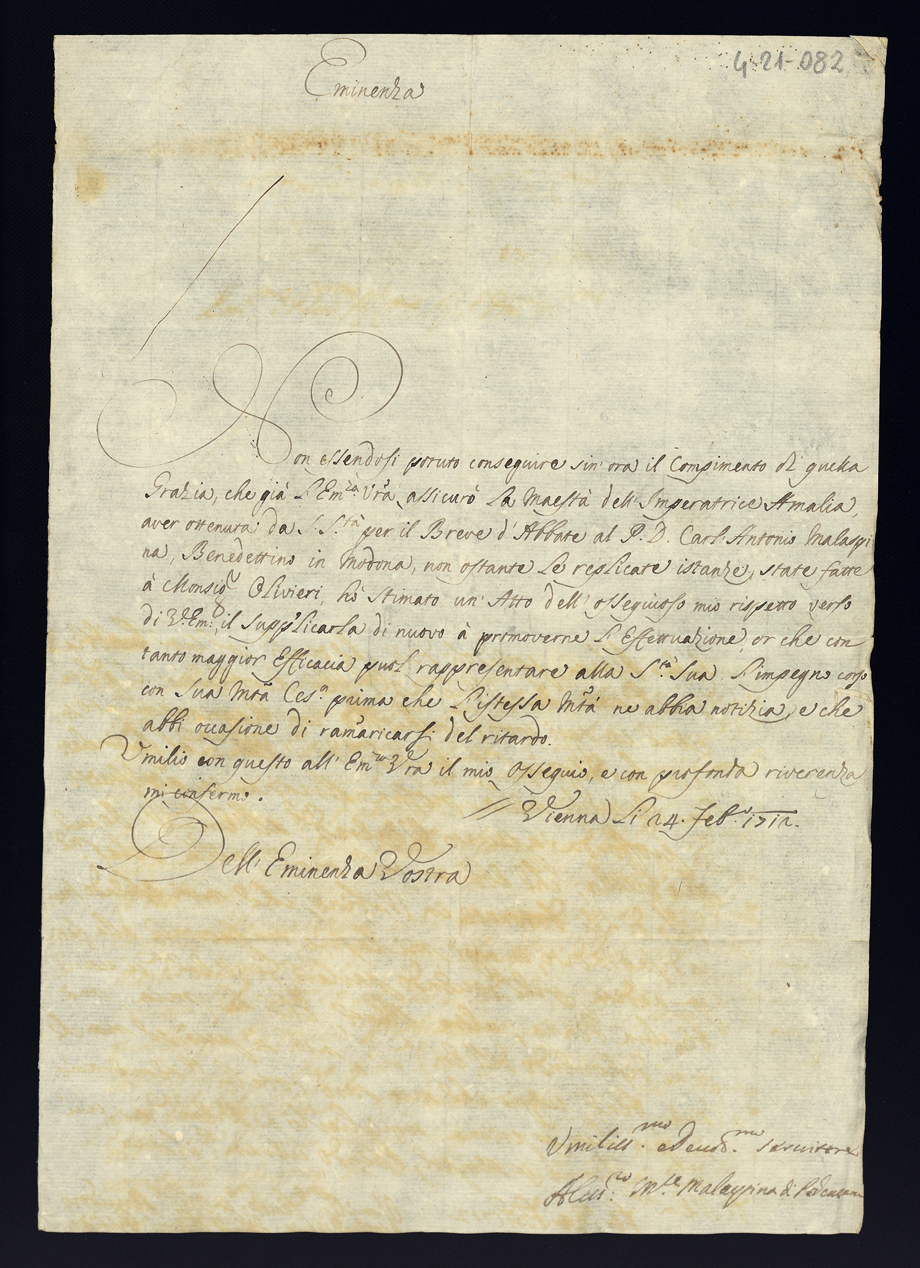 4-21-082
Eminenza
Non essendosi potuto conseguire sin' ora il Compimento di quella
Grazia, che già l'Em.za Vrã assicurò la Maestà dell' Imperatrice Amalia,
aver ottenuta da S. S.tà per il Breve d'Abbate al P. D. Carl' Antonio Malaspi
na, Benedettino in Modona, non ostante le replicate istanze, state fatte
à Monsig.r Olivieri, hò stimato un' Atto dell' ossequioso mio rispetto verso
di V. Em: il supplicarla di nuovo à promoverne l'Effettuazione, or che con
tanto maggior Efficacia puol rappresentare alla S.tà Sua l'impegno corso
con Sua Mtà Ces.a prima che l'istessa Mtà ne abbia notizia, e che
abbi occasione di ramaricarsi del ritardo.
Umilio con questo all' Em.za Vrã il mio Ossequio, e con profonda riverenza
mi confermo.
Vienna li 24. Feb.o 1712.
Dell' Eminenza Vostra
Umiliss.mo e Devot.mo Servitore
M.se Malaspina di